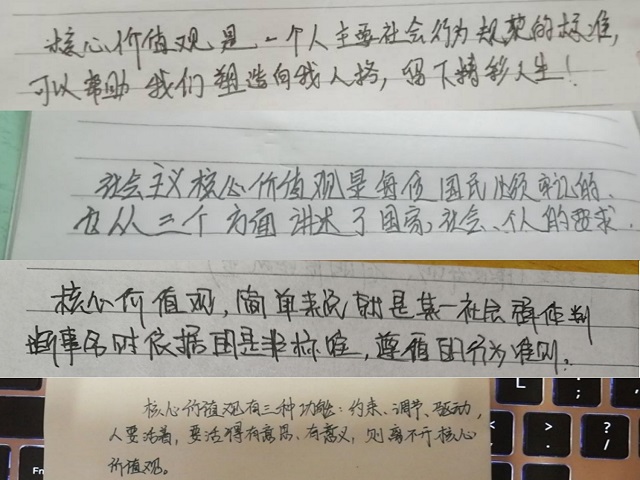 核心价值观是一个人主要社会行为规范的标准,
可以帮助我们塑造自我人格,留下精彩人生!
社会主义核心价值观是每位国民必须牢记的、
也从三个方面讲述了国家、社会、个人的要求.
核心价值观,简单来说就是某一社会群体判
断事务时依据的是非标准,遵循的行为准则.
核心价值观有三种功能:约束、调节、驱动,
人要活着,要活得有意思、有意义,则离不开核心
价值观。
L
:
;
"
'
>
.
?
/
Fn